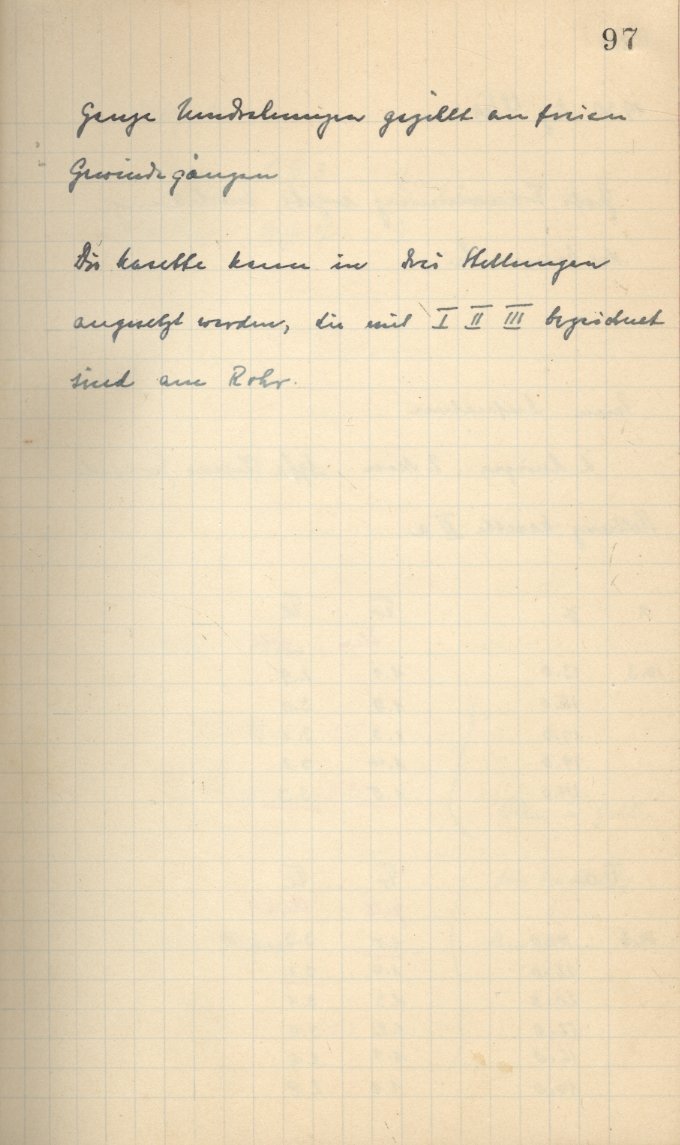 97
Ganze Umdrehungen gezählt an freien
Gewindegängen
Die Kasette kann in drei Stellungen
angesetzt werden, die mit I II III bezeichnet
sind am Rohr.